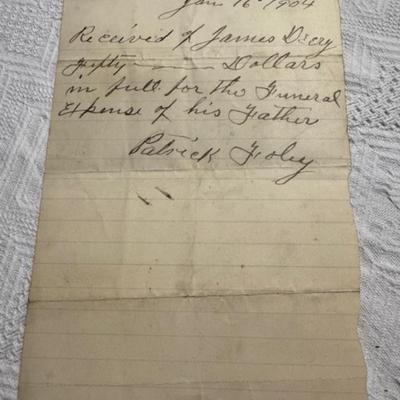 Jan 16 1904
Received of James Deery
Fifty ——— Dollars
in full for the Funeral
Expense of his Father
Patrick Foley